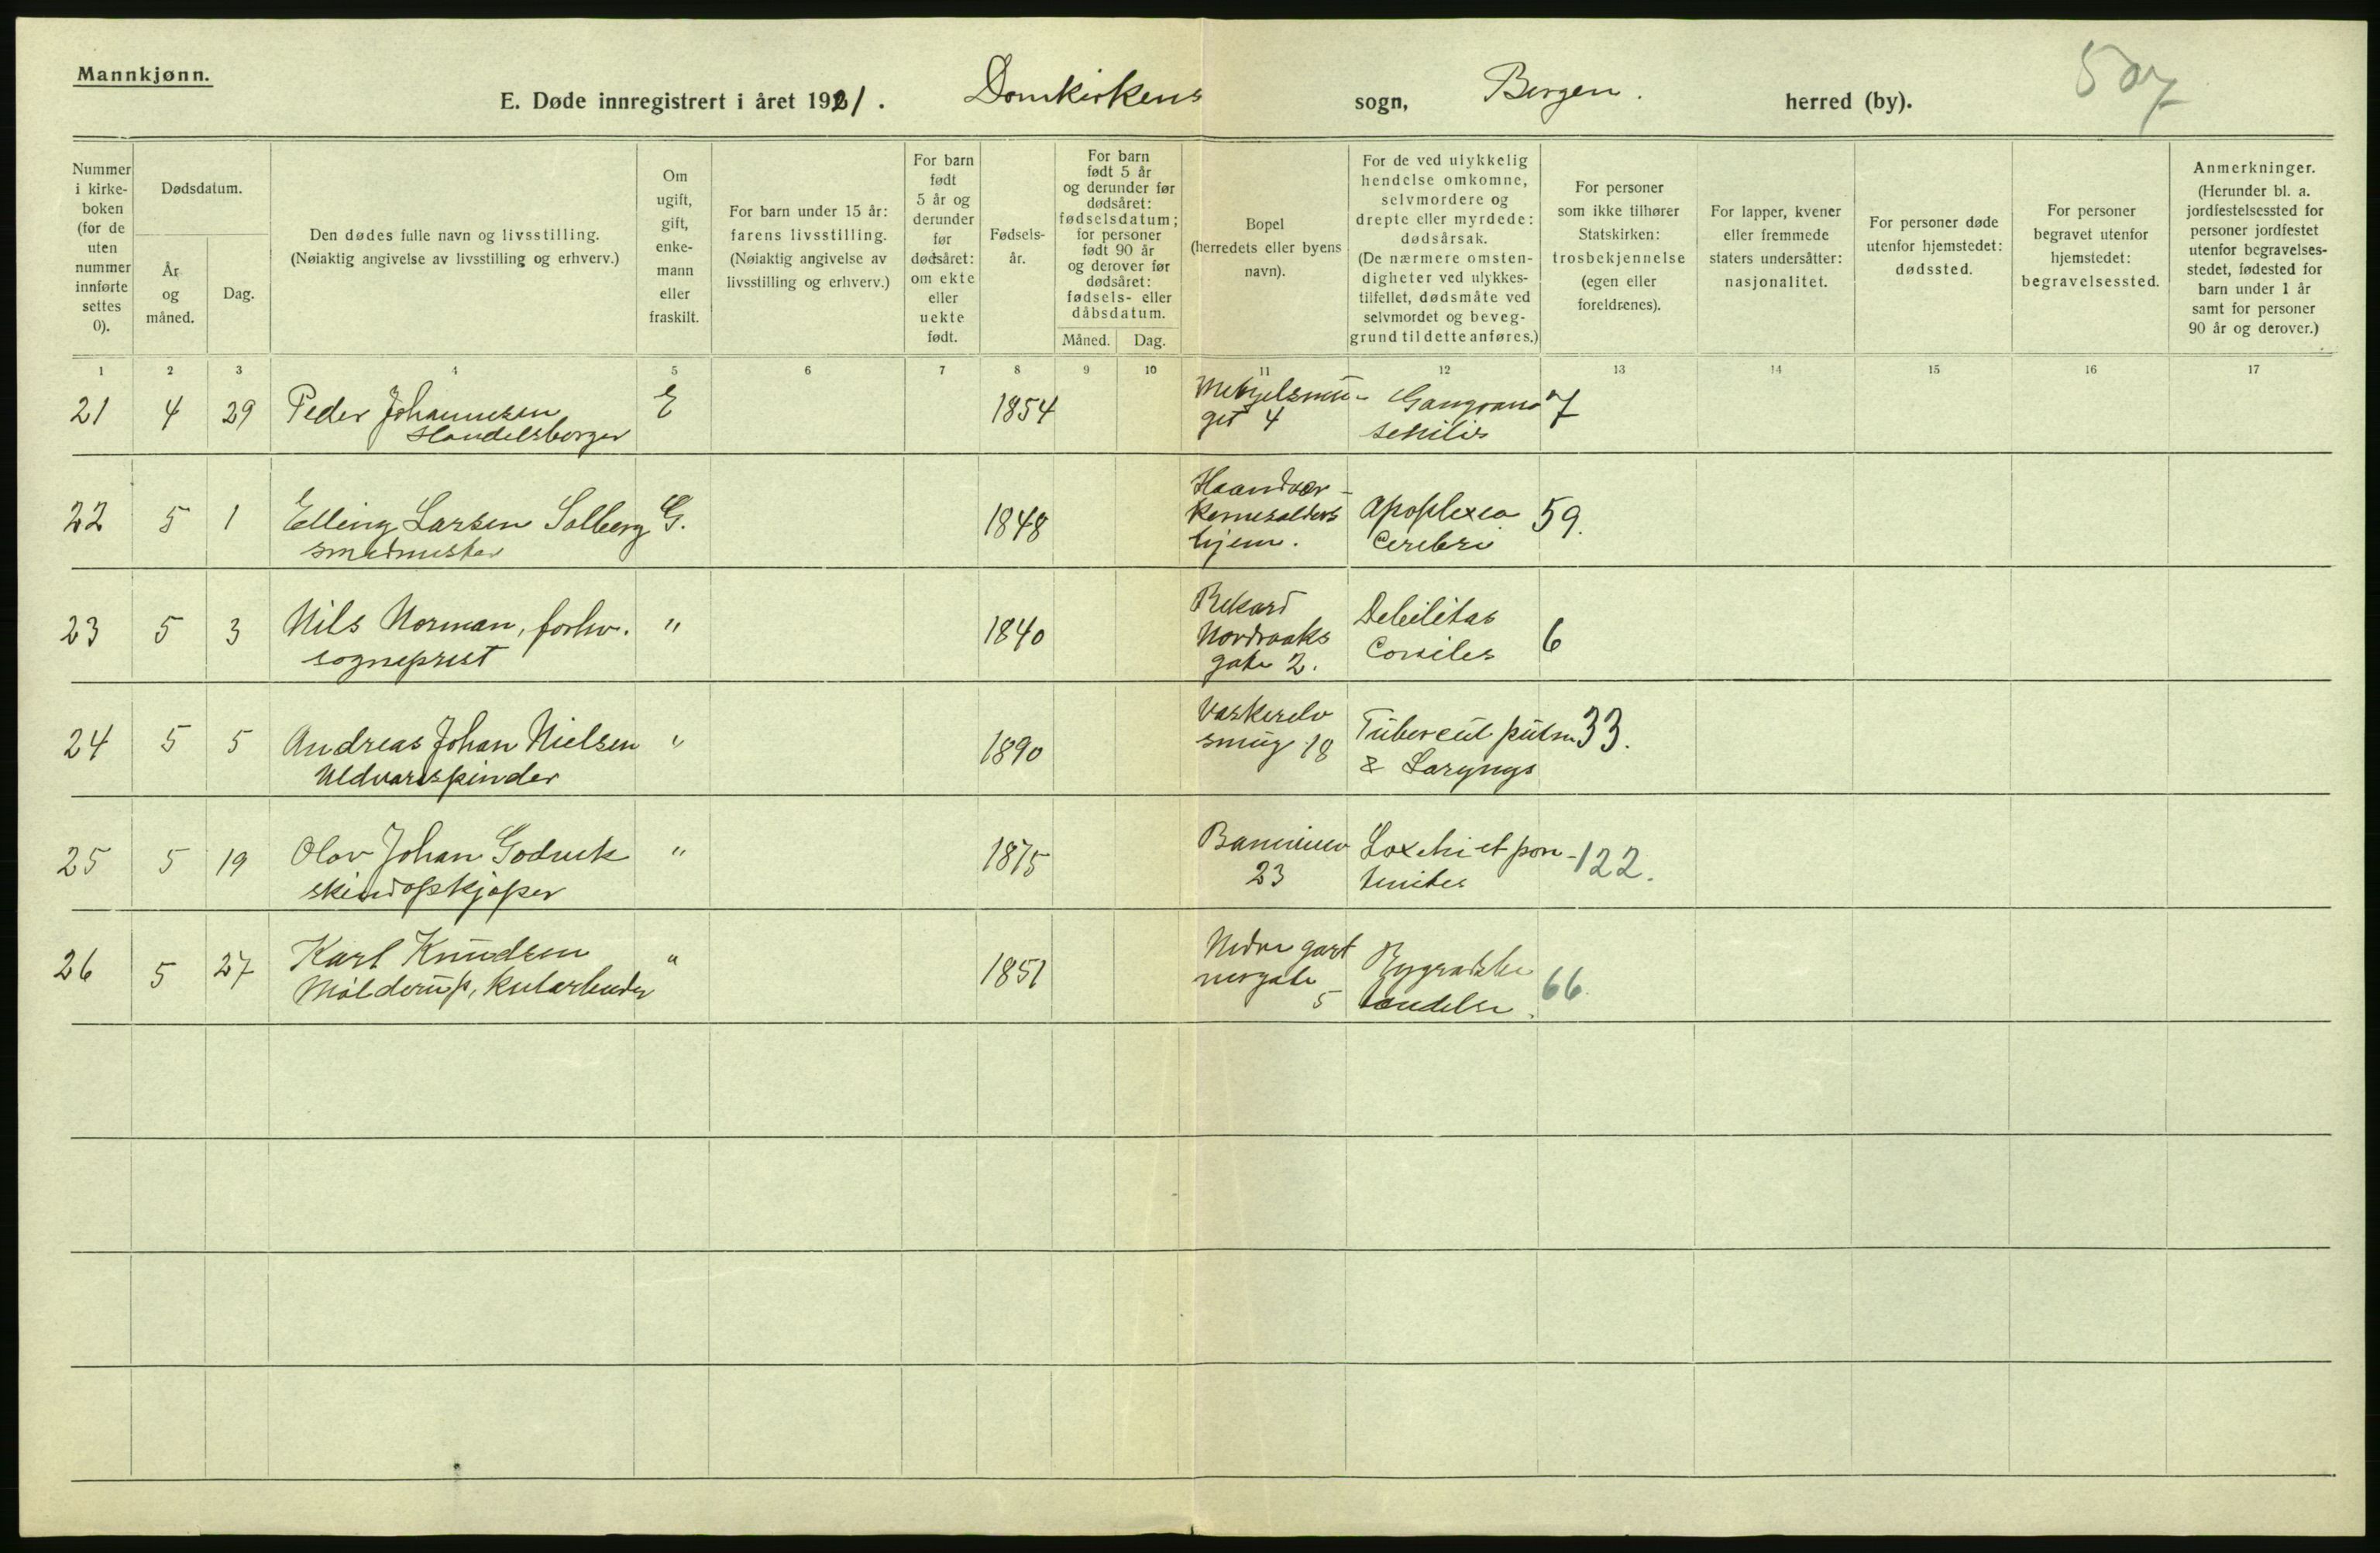 Mannkjønn.
E. Døde innregistrert i året 1921. Domkirkens sogn, Bergen. herred (by).
507
Nummer i kirke- boken (for de uten nummer innførte settes 0).
Dødsdatum.
År og måned.
Dag.
Den dødes fulle navn og livsstilling.
(Nøiaktig angivelse av livsstilling og erhverv.)
Om ugift, gift, enke- mann eller fraskilt.
For barn under 15 år: farens livsstilling.
(Nøiaktig angivelse av livsstilling og erhverv.)
For barn født 5 år og derunder før dødsåret: om ekte eller uekte født.
Fødsels- år.
For barn født 5 år og derunder før dødsåret: fødselsdatum; for personer født 90 år og derover før dødsåret: fødsels- eller dåbsdatum.
Måned.
Dag.
Bopel (herredets eller byens navn).
For de ved ulykkelig hendelse omkomne, selvmordere og drepte eller myrdede: dødsårsak.
(De nærmere omsten- digheter ved ulykkes- tilfellet, dødsmåte ved selvmordet og beveg- grund til dette anføres.)
For personer som ikke tilhører Statskirken: trosbekjennelse (egen eller foreldrenes).
For lapper, kvener eller fremmede staters undersåtter: nasjonalitet.
For personer døde utenfor hjemstedet: dødssted.
For personer begravet utenfor hjemstedet: begravelsessted.
Anmerkninger.
(Herunder bl. a. jordfestelsessted for personer jordfestet utenfor begravelses- stedet, fødested for barn under 1 år samt for personer 90 år og derover.)
1 2 3 4 5 6 7 8 9 10 11 12 13 14 15 16 17
21 4 29 Peder Johannesen E 1854 Gangræna 7
Handelsborger get 4 senilis
Haandvær-
22 5 1 Elling Larsen Solberg G. 1848 kernesalders Apoplexia 59.
smedmester hjem. Cerebri
Rikard
23 5 3 Nils Norman, forhv. " 1840 Nordraaks Debilitas 6
sogneprest gate 2. Cordis
Vaskerelv
24 5 5 Andreas Johan Nielsen " 1890 smug 18 Tubercul pulm 33.
Uldvarespinder & Laryngs
25 5 19 Olav Johan " 1875 122.
skindopkjøper 23
Nedre gart
26 5 27 Karl Knudsen " 1851 nergate Rygradsbe 66.
Mølderup, 5 tændelse.